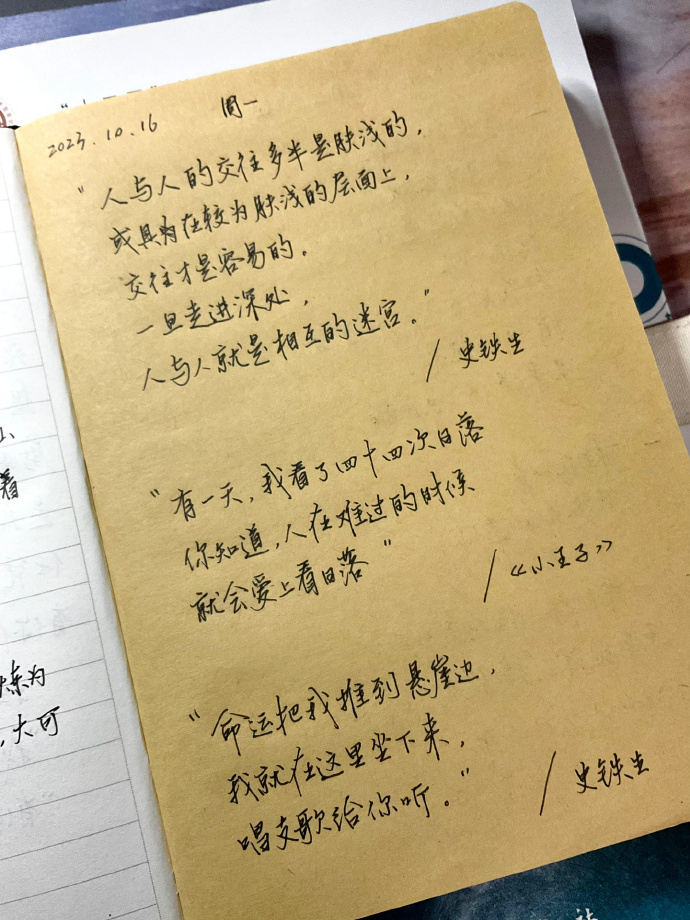 2023.10.16 周一
"人与人的交往多半是肤浅的，
或只有在较为肤浅的层面上，
交往才是容易的。
一旦走进深处，
人与人就是相互的迷宫。"
/ 史铁生
"有一天，我看了四十四次日落
你知道，人在难过的时候
就会爱上看日落"
/《小王子》
"命运把我推到悬崖边，
我就在这里坐下来，
唱支歌给你听。"
/ 史铁生
着
炼为
，大可